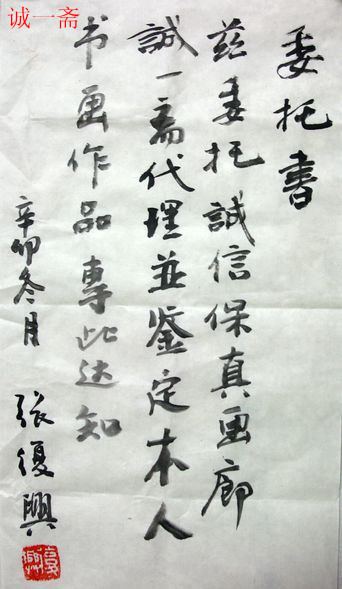 诚一斋
委托書
兹委托誠信保真画廊
誠一斋代理並鉴定本人
书画作品專此达知
辛卯冬月
张復興